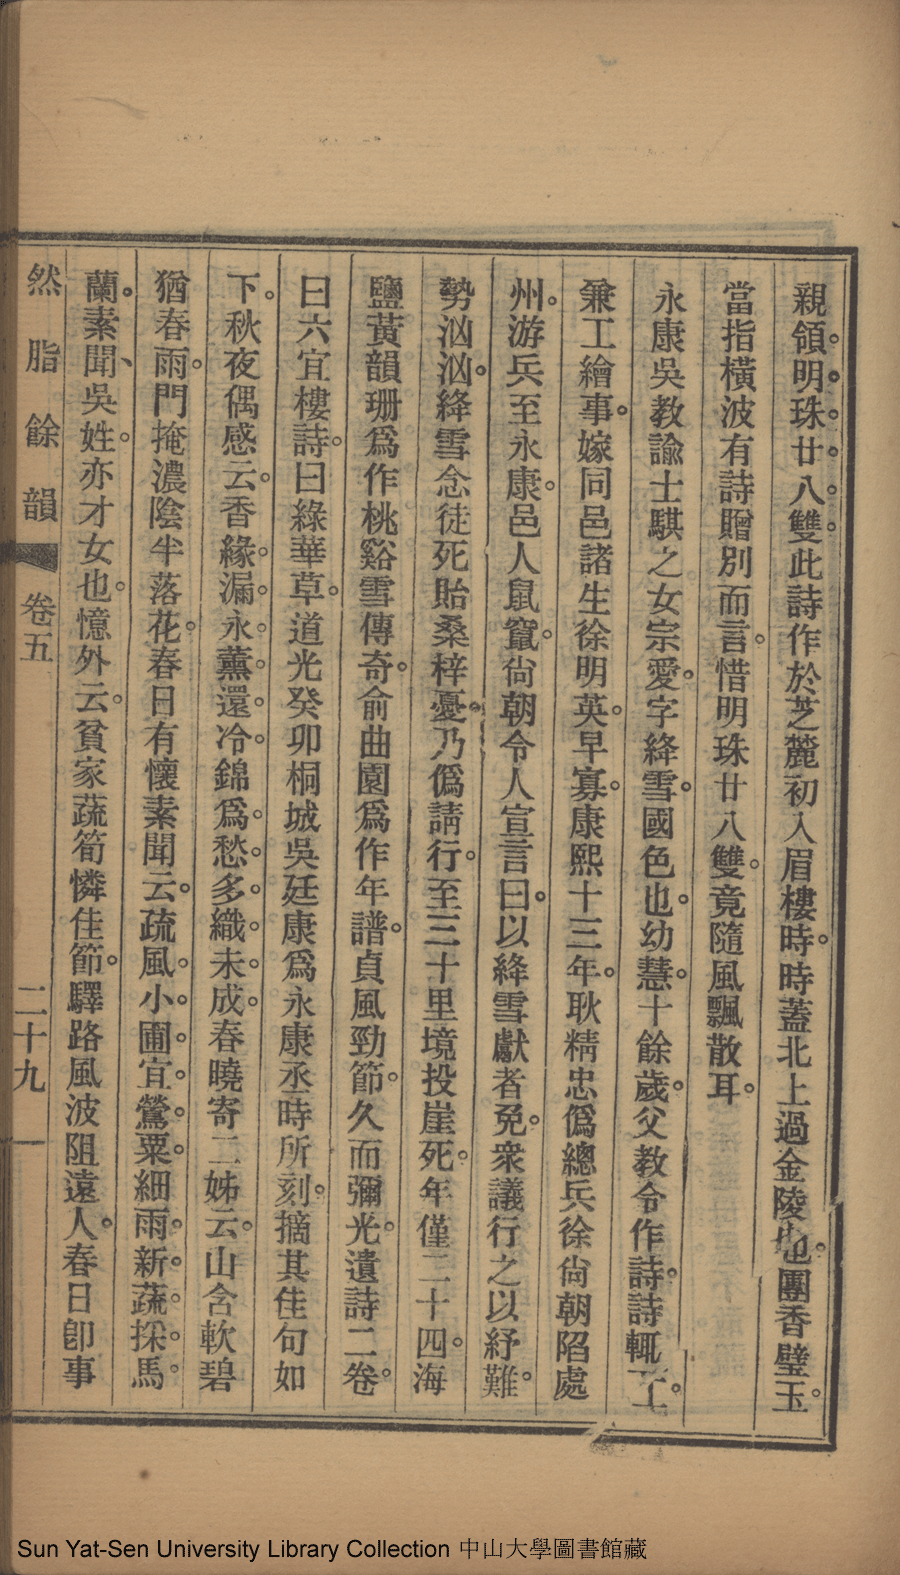 親領明珠廿八雙此詩作於芝麓初入眉樓時時蓋北上過金陵也團香璧玉
當指橫波有詩贈別而言惜明珠廿八雙竟隨風飄散耳
永康吳教諭士騏之女宗愛字絳雪國色也幼慧十餘歲父教令作詩詩輒工
兼工繪事嫁同邑諸生徐明英早寡康熙十三年耿精忠僞總兵徐尙朝陷處
州游兵至永康邑人鼠竄尙朝令人宣言曰以絳雪獻者免衆議行之以紓難
勢洶洶絳雪念徒死貽桑梓憂乃僞請行至三十里境投崖死年僅二十四海
鹽黃韻珊爲作桃谿雪傳奇俞曲園爲作年譜貞風勁節久而彌光遺詩二卷
曰六宜樓詩曰綠華草道光癸卯桐城吳廷康爲永康丞時所刻摘其佳句如
下秋夜偶感云香緣漏永薰還冷錦爲愁多織未成春曉寄二姊云山含軟碧
猶春雨門掩濃陰半落花春日有懷素聞云疏風小圃宜鶯粟細雨新蔬採馬
蘭素聞吳姓亦才女也憶外云貧家蔬筍憐佳節驛路風波阻遠人春日卽事
然脂餘韻 卷五 二十九
Sun Yat-Sen University Library Collection 中山大學圖書館藏